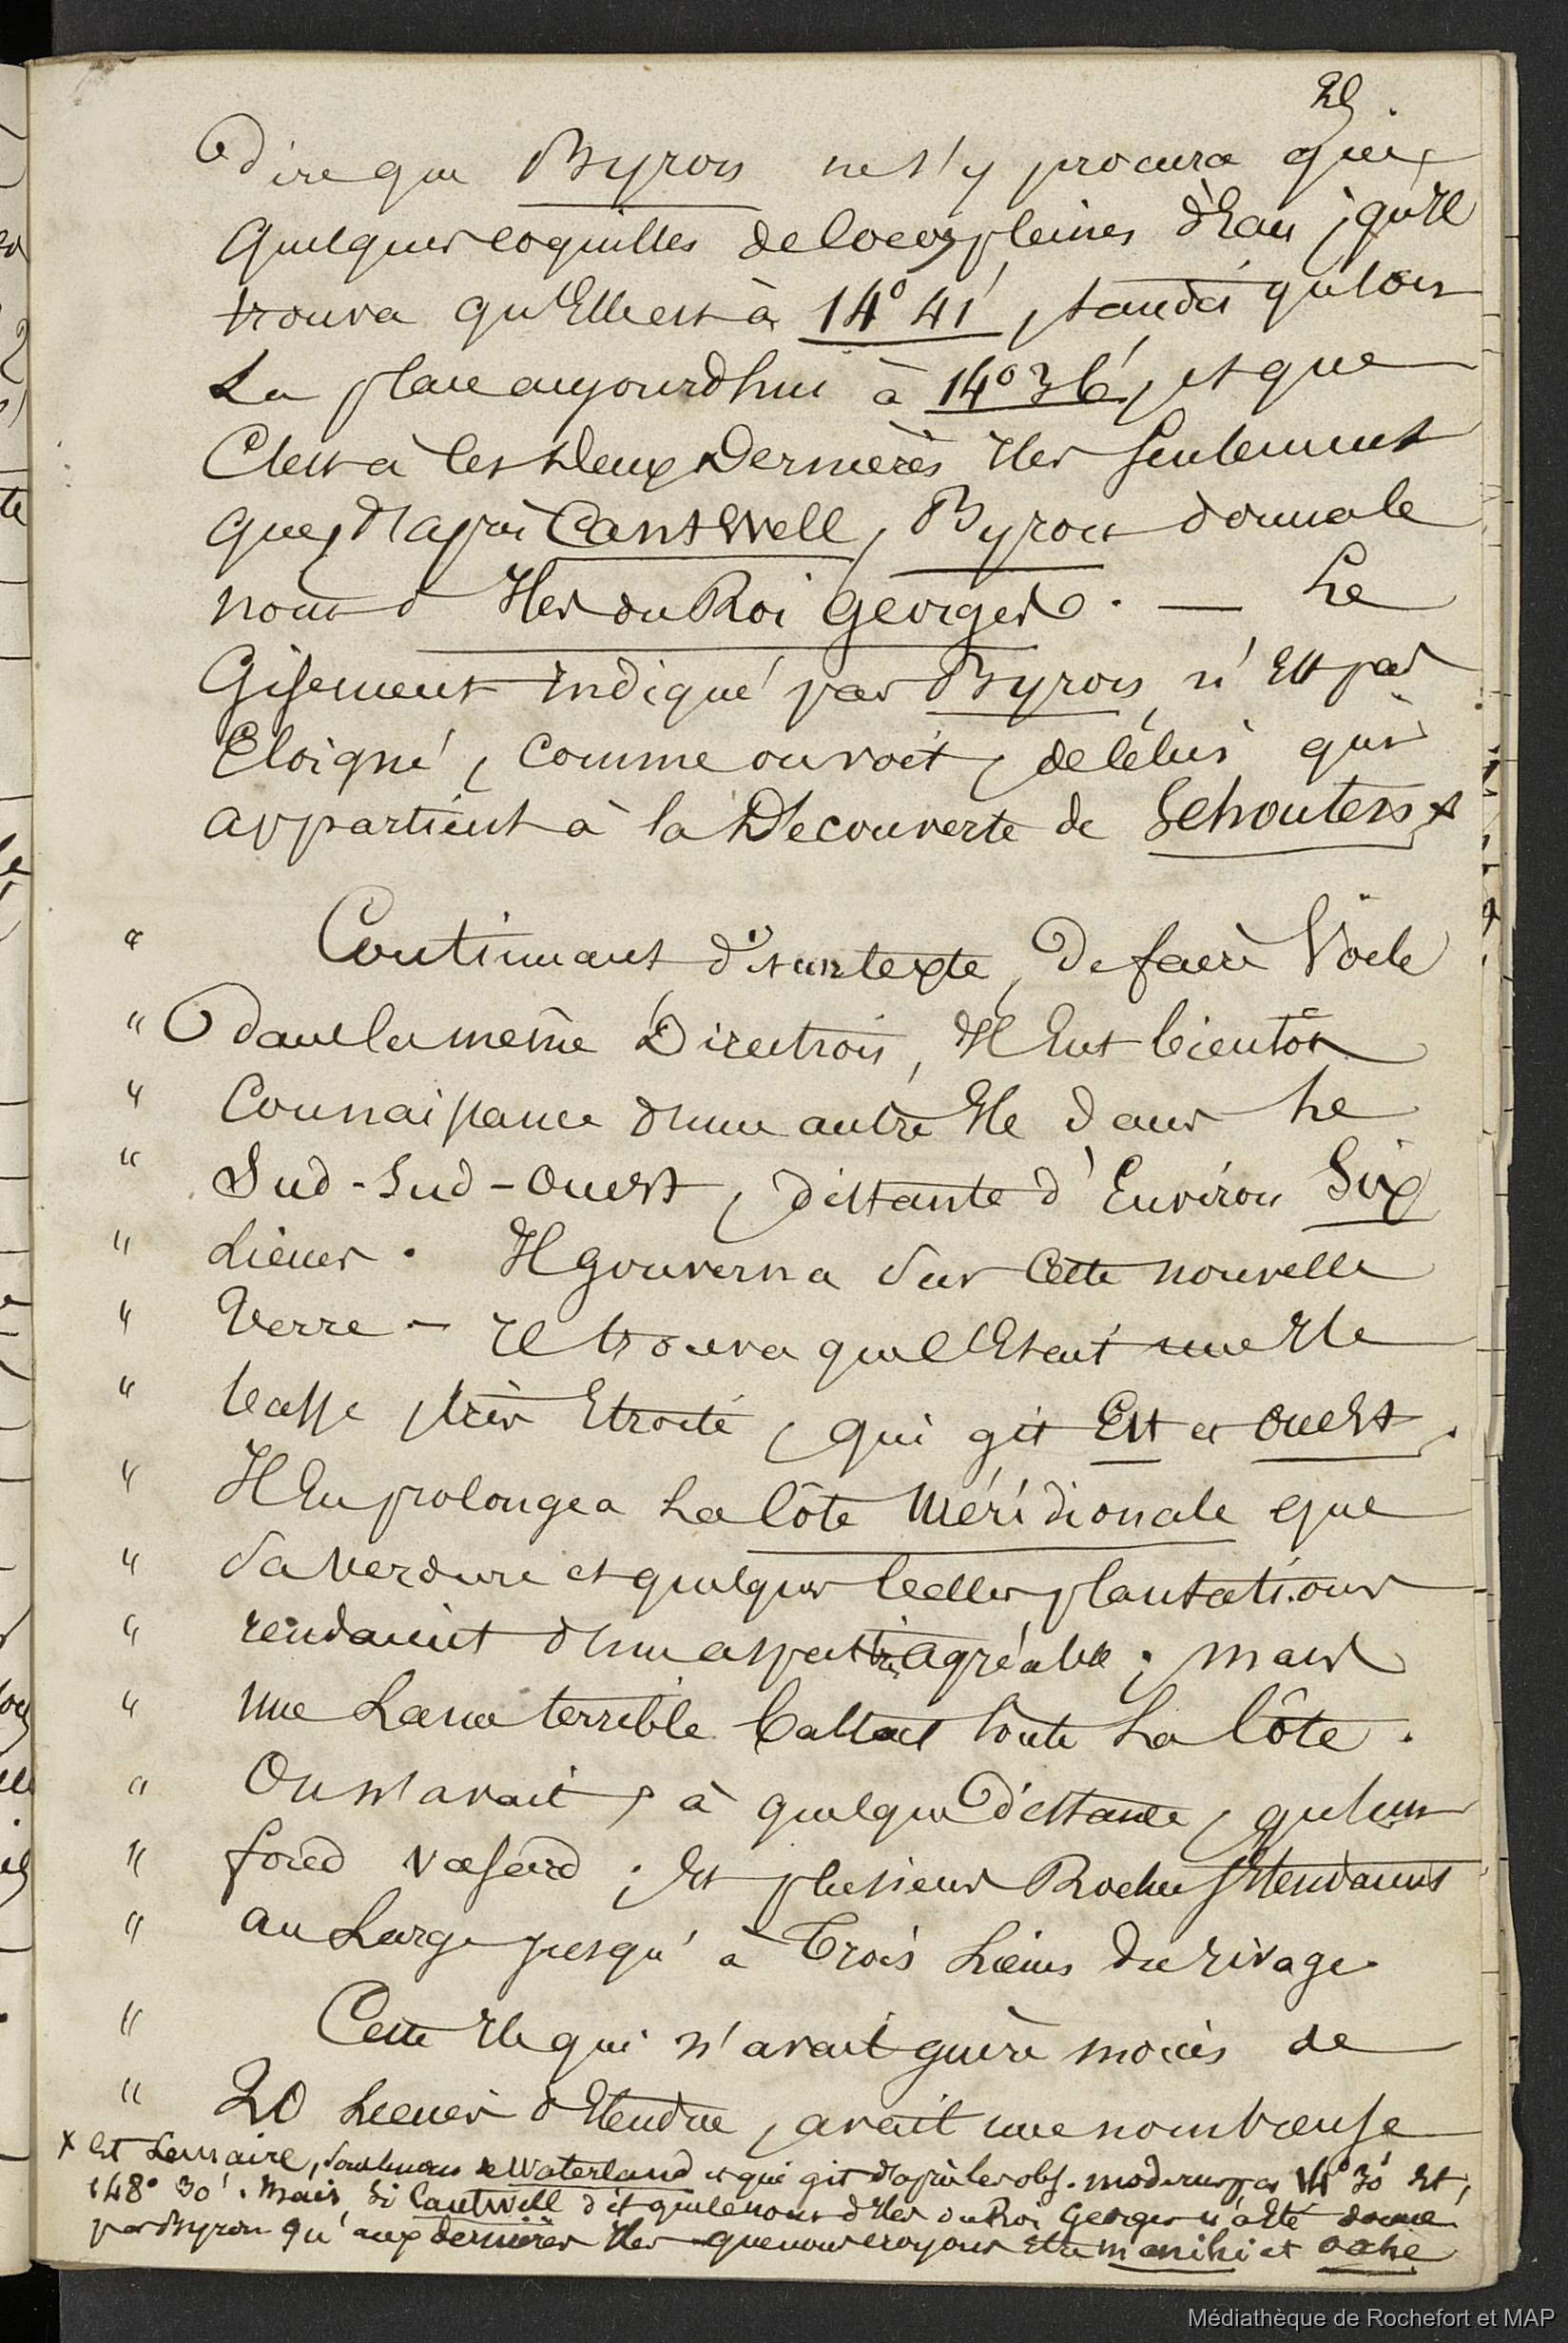 29.
dire que Byron ne s'y procura que
quelques coquilles de cocos pleines d'Eau ; qu'Il
trouva qu'Elle est à 14° 41', tandis qu'on
La place aujourd'hui à 14° 36', et que
C'est à ces Deux Dernières Iles seulement
que, d'après Cantwell, Byron donna le
nom d'Iles du Roi Georges. — Le
Gisement Indiqué par Byron n'Est pas
Eloigné, comme on voit, de celui qui
appartient à la Découverte de Schouten x
" Continuant, dit un texte, De faire Voile
" dans la même Direction, Il Eut bientôt
" Connaissance d'une autre Ile dans Le
" Sud-Sud-Ouest, distante d'Environ Six
" Lieues. Il gouverna sur cette nouvelle
" Terre — Il trouva que c'Etait une Ile
" basse très Etroite, qui gît Est et Ouest.
" Il En prolongea La Côte Méridionale que
" sa verdure et quelques belles plantations
" rendaient d'un aspect très agréable ; mais
" une Lame terrible battait toute La Côte.
" On n'avait, à quelque Distance, qu'un
" fond vasard ; Et plusieurs Roches s'Etendaient
" au Large jusqu'à Trois Lieues du rivage.
" Cette Ile qui n'avait guère moins de
" 20 Lieues d'Etendue, avait une nombreuse
x Et Lemaire, Waterland et qui gît d'après les obs. modernes par 14° 30' Et
148° 30'. Mais, si Cantwell dit que le nom d'Iles du Roi Georges n'a Eté donné
par Byron qu'aux dernières Iles que nous croyons Etre manihi et oahe
Médiathèque de Rochefort et MAP